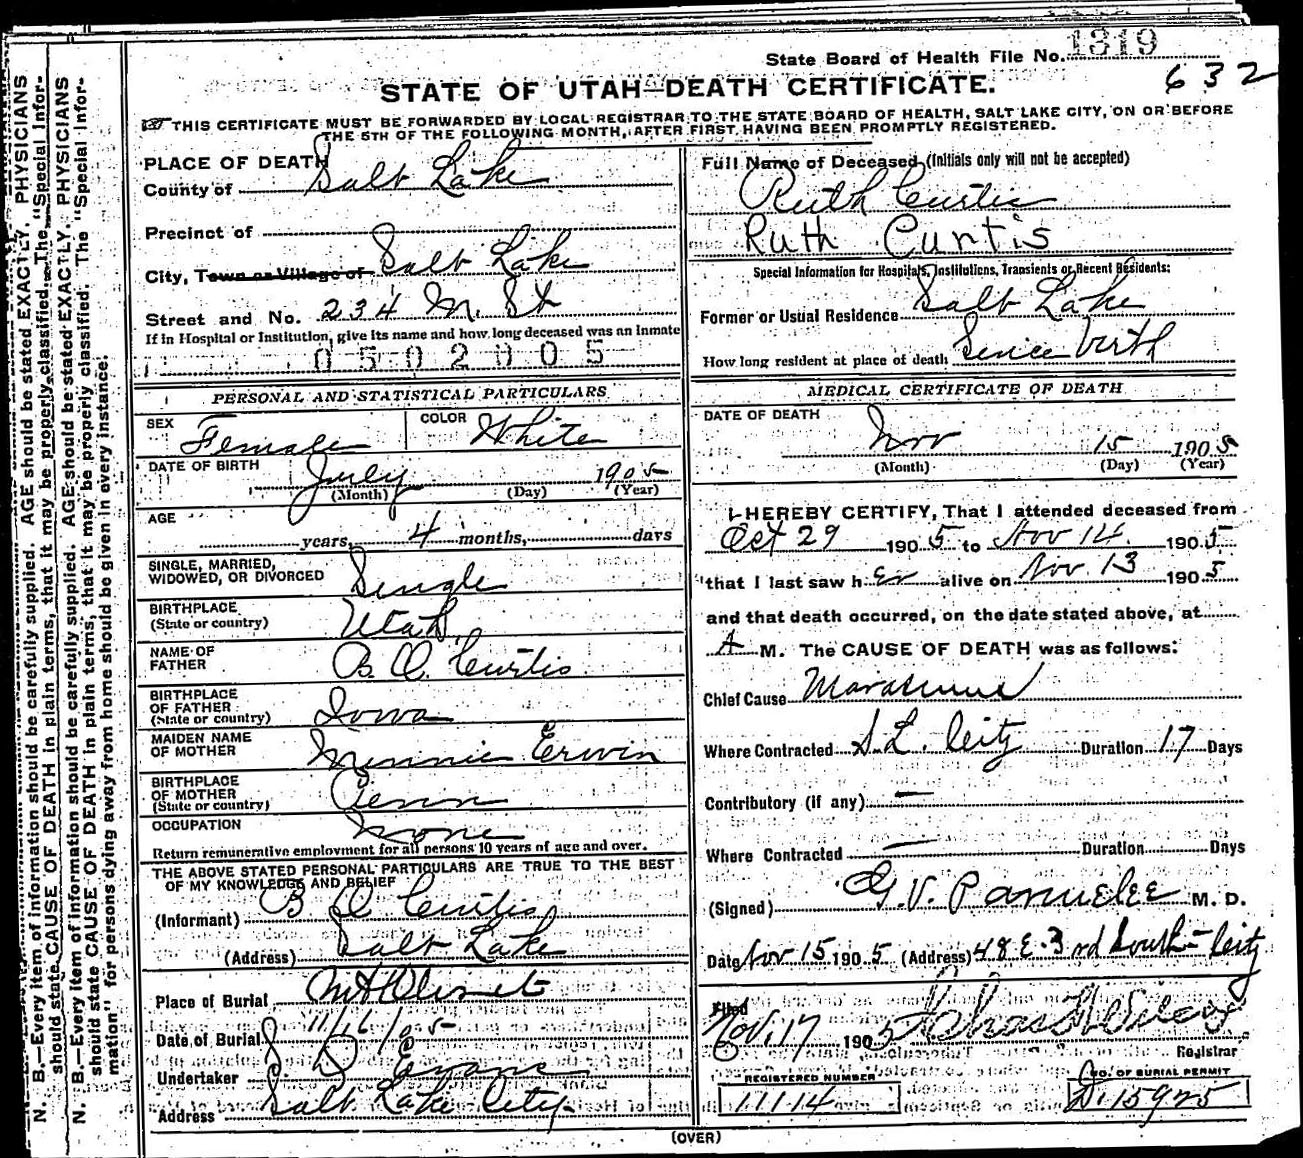 State Board of Health File No. 1319
632
STATE OF UTAH—DEATH CERTIFICATE.
THIS CERTIFICATE MUST BE FORWARDED BY LOCAL REGISTRAR TO THE STATE BOARD OF HEALTH, SALT LAKE CITY, ON OR BEFORE
THE 5TH OF THE FOLLOWING MONTH, AFTER FIRST HAVING BEEN PROMPTLY REGISTERED.
PLACE OF DEATH
County of Salt Lake
Precinct of
City, Town or Village of Salt Lake
Street and No. 234 M. St
If in Hospital or Institution, give its name and how long deceased was an Inmate
0502005
PERSONAL AND STATISTICAL PARTICULARS
SEX Female COLOR White
DATE OF BIRTH July 1905
(Month) (Day) (Year)
AGE
years, 4 months, days
SINGLE, MARRIED,
WIDOWED, OR DIVORCED Single
BIRTHPLACE
(State or country) Utah
NAME OF
FATHER B. O. Curtis
BIRTHPLACE
OF FATHER
(State or country) Iowa
MAIDEN NAME
OF MOTHER Minnie Erwin
BIRTHPLACE
OF MOTHER
(State or country) Penn
OCCUPATION None
Return remunerative employment for all persons 10 years of age and over.
THE ABOVE STATED PERSONAL PARTICULARS ARE TRUE TO THE BEST
OF MY KNOWLEDGE AND BELIEF
(Informant) B O Curtis
(Address) Salt Lake
Place of Burial Mt Olivet
Date of Burial 11/16/05
Undertaker S. D. Evans
Address Salt Lake City
Full Name of Deceased (Initials only will not be accepted)
Ruth Curtis
Ruth Curtis
Special Information for Hospitals, Institutions, Transients or Recent Residents:
Former or Usual Residence Salt Lake
How long resident at place of death Since birth
MEDICAL CERTIFICATE OF DEATH
DATE OF DEATH
Nov 15 1905
(Month) (Day) (Year)
I HEREBY CERTIFY, That I attended deceased from
Oct 29 1905 to Nov 14 1905
that I last saw her alive on Nov 13 1905
and that death occurred, on the date stated above, at
A M. The CAUSE OF DEATH was as follows:
Chief Cause Marasmus
Where Contracted S. L. City Duration 17 Days
Contributory (if any) —
Where Contracted — Duration Days
(Signed) G. V. Parmelee M. D.
Date Nov 15 1905 (Address) 48 E. 3rd South City
Filed
Nov. 17 1905 Chas H Wilcox
Registrar
REGISTERED NUMBER
11114
NO. OF BURIAL PERMIT
D. 15925
(OVER)
N. B.—Every item of information should be carefully supplied. AGE should be stated EXACTLY. PHYSICIANS
should state CAUSE OF DEATH in plain terms, that it may be properly classified. The "Special Infor-
N. B.—Every item of information should be carefully supplied. AGE should be stated EXACTLY. PHYSICIANS
should state CAUSE OF DEATH in plain terms, that it may be properly classified. The "Special Infor-
mation" for persons dying away from home should be given in every instance.